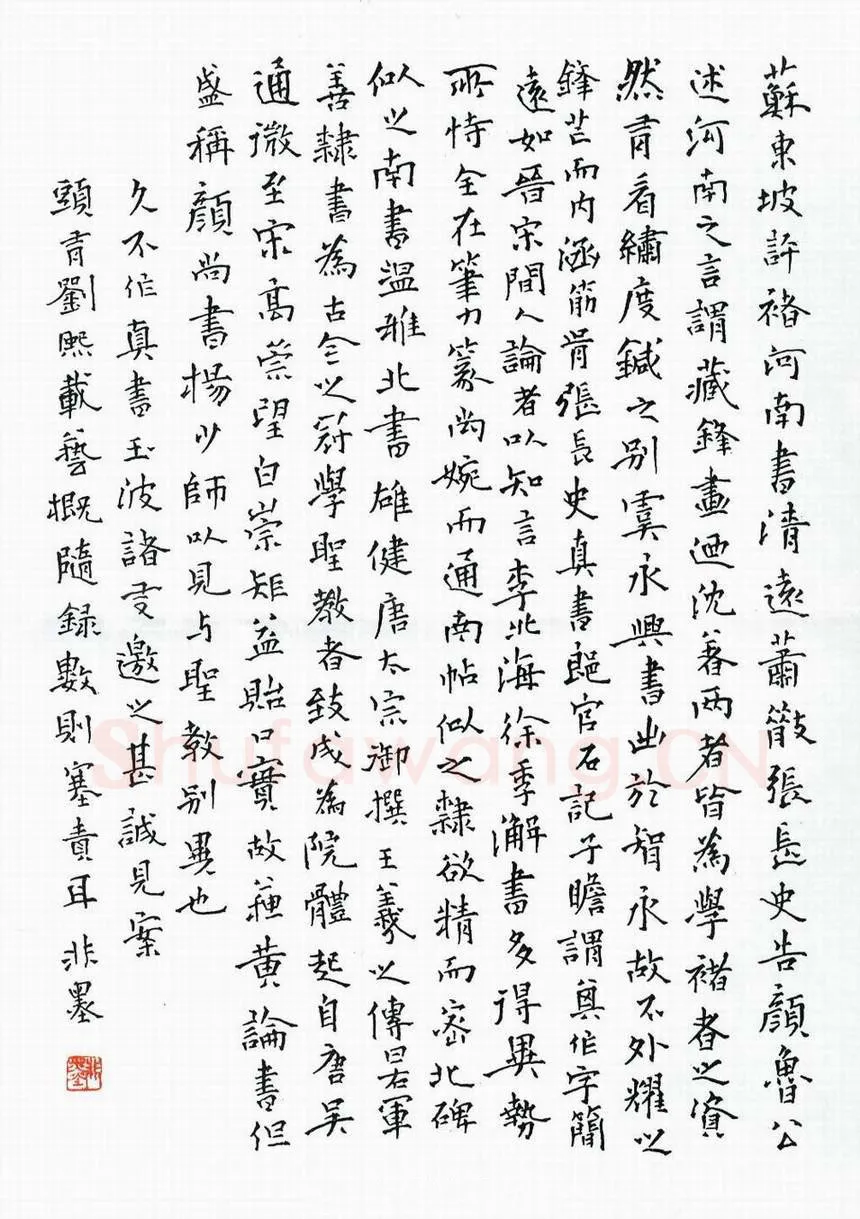 蘇東坡評褚河南書清遠蕭散張長史告顏魯公
述河南之言謂藏鋒畫迺沈著兩者皆為學褚者之資
然有看繡度鍼之別虞永興書出於智永故不外耀以
鋒芒而內涵筋骨張長史真書郎官石記子瞻謂其作字簡
遠如晉宋間人論者以知言李北海徐季海解書多得異勢
所恃全在筆力篆尚婉而通南帖似之隸欲精而密北碑
似之南書溫雅北書雄健唐太宗御撰王羲之傳曰右軍
善隸書為古今之冠學聖教者致成為院體起自唐吳
通微至宋高崇望白崇矩益貽口實故蘇黃論書但
盛稱顏尚書楊少師以見与聖教別異也
久不作真書玉波諸友邀之甚誠見案
頭有劉熙載藝概隨錄數則塞責耳非墨
非墨
Shufawang.CN